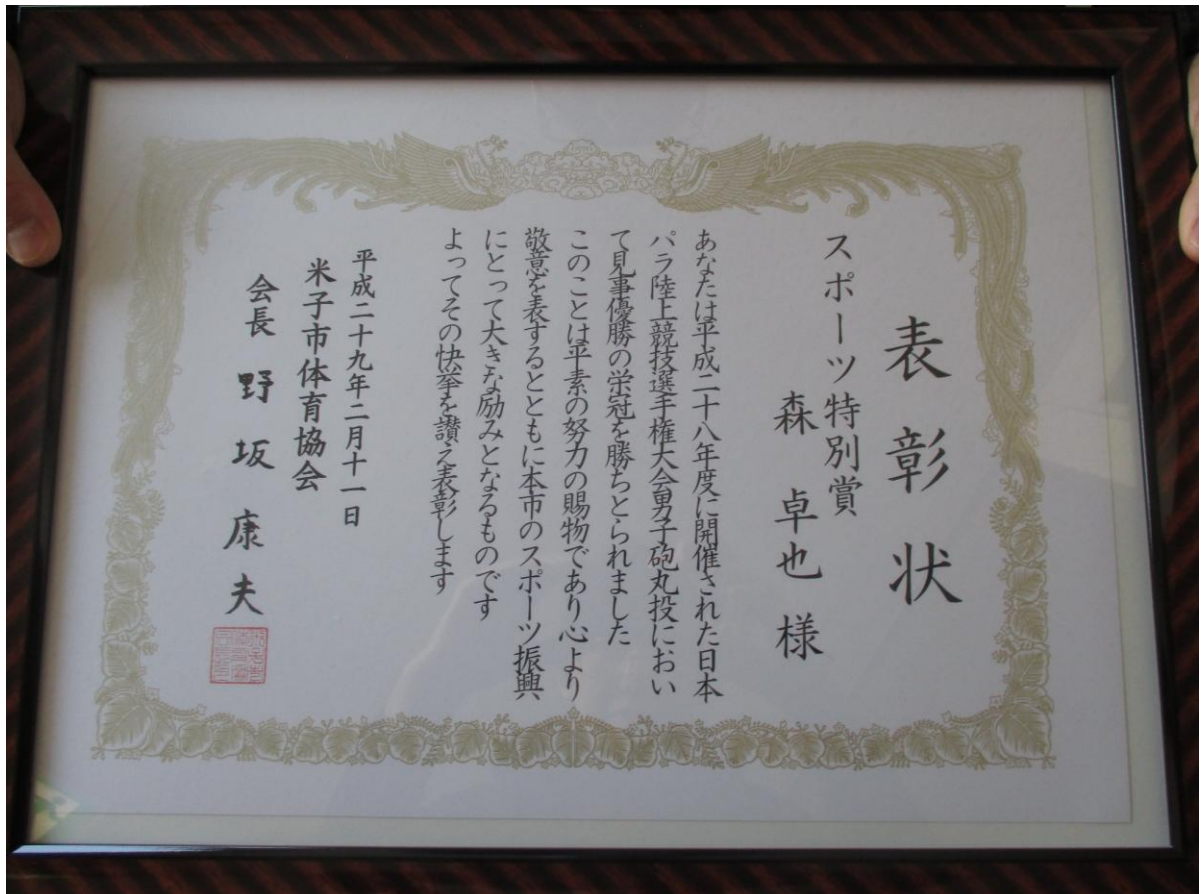 表彰状
スポーツ特別賞
森卓也様
あなたは平成二十八年度に開催された日本
パラ陸上競技選手権大会男子砲丸投におい
て見事優勝の栄冠を勝ちとられました
このことは平素の努力の賜物であり心より
敬意を表するとともに本市のスポーツ振興
にとって大きな励みとなるものです
よってその快挙を讃え表彰します
平成二十九年二月十一日
米子市体育協会
会長 野坂康夫